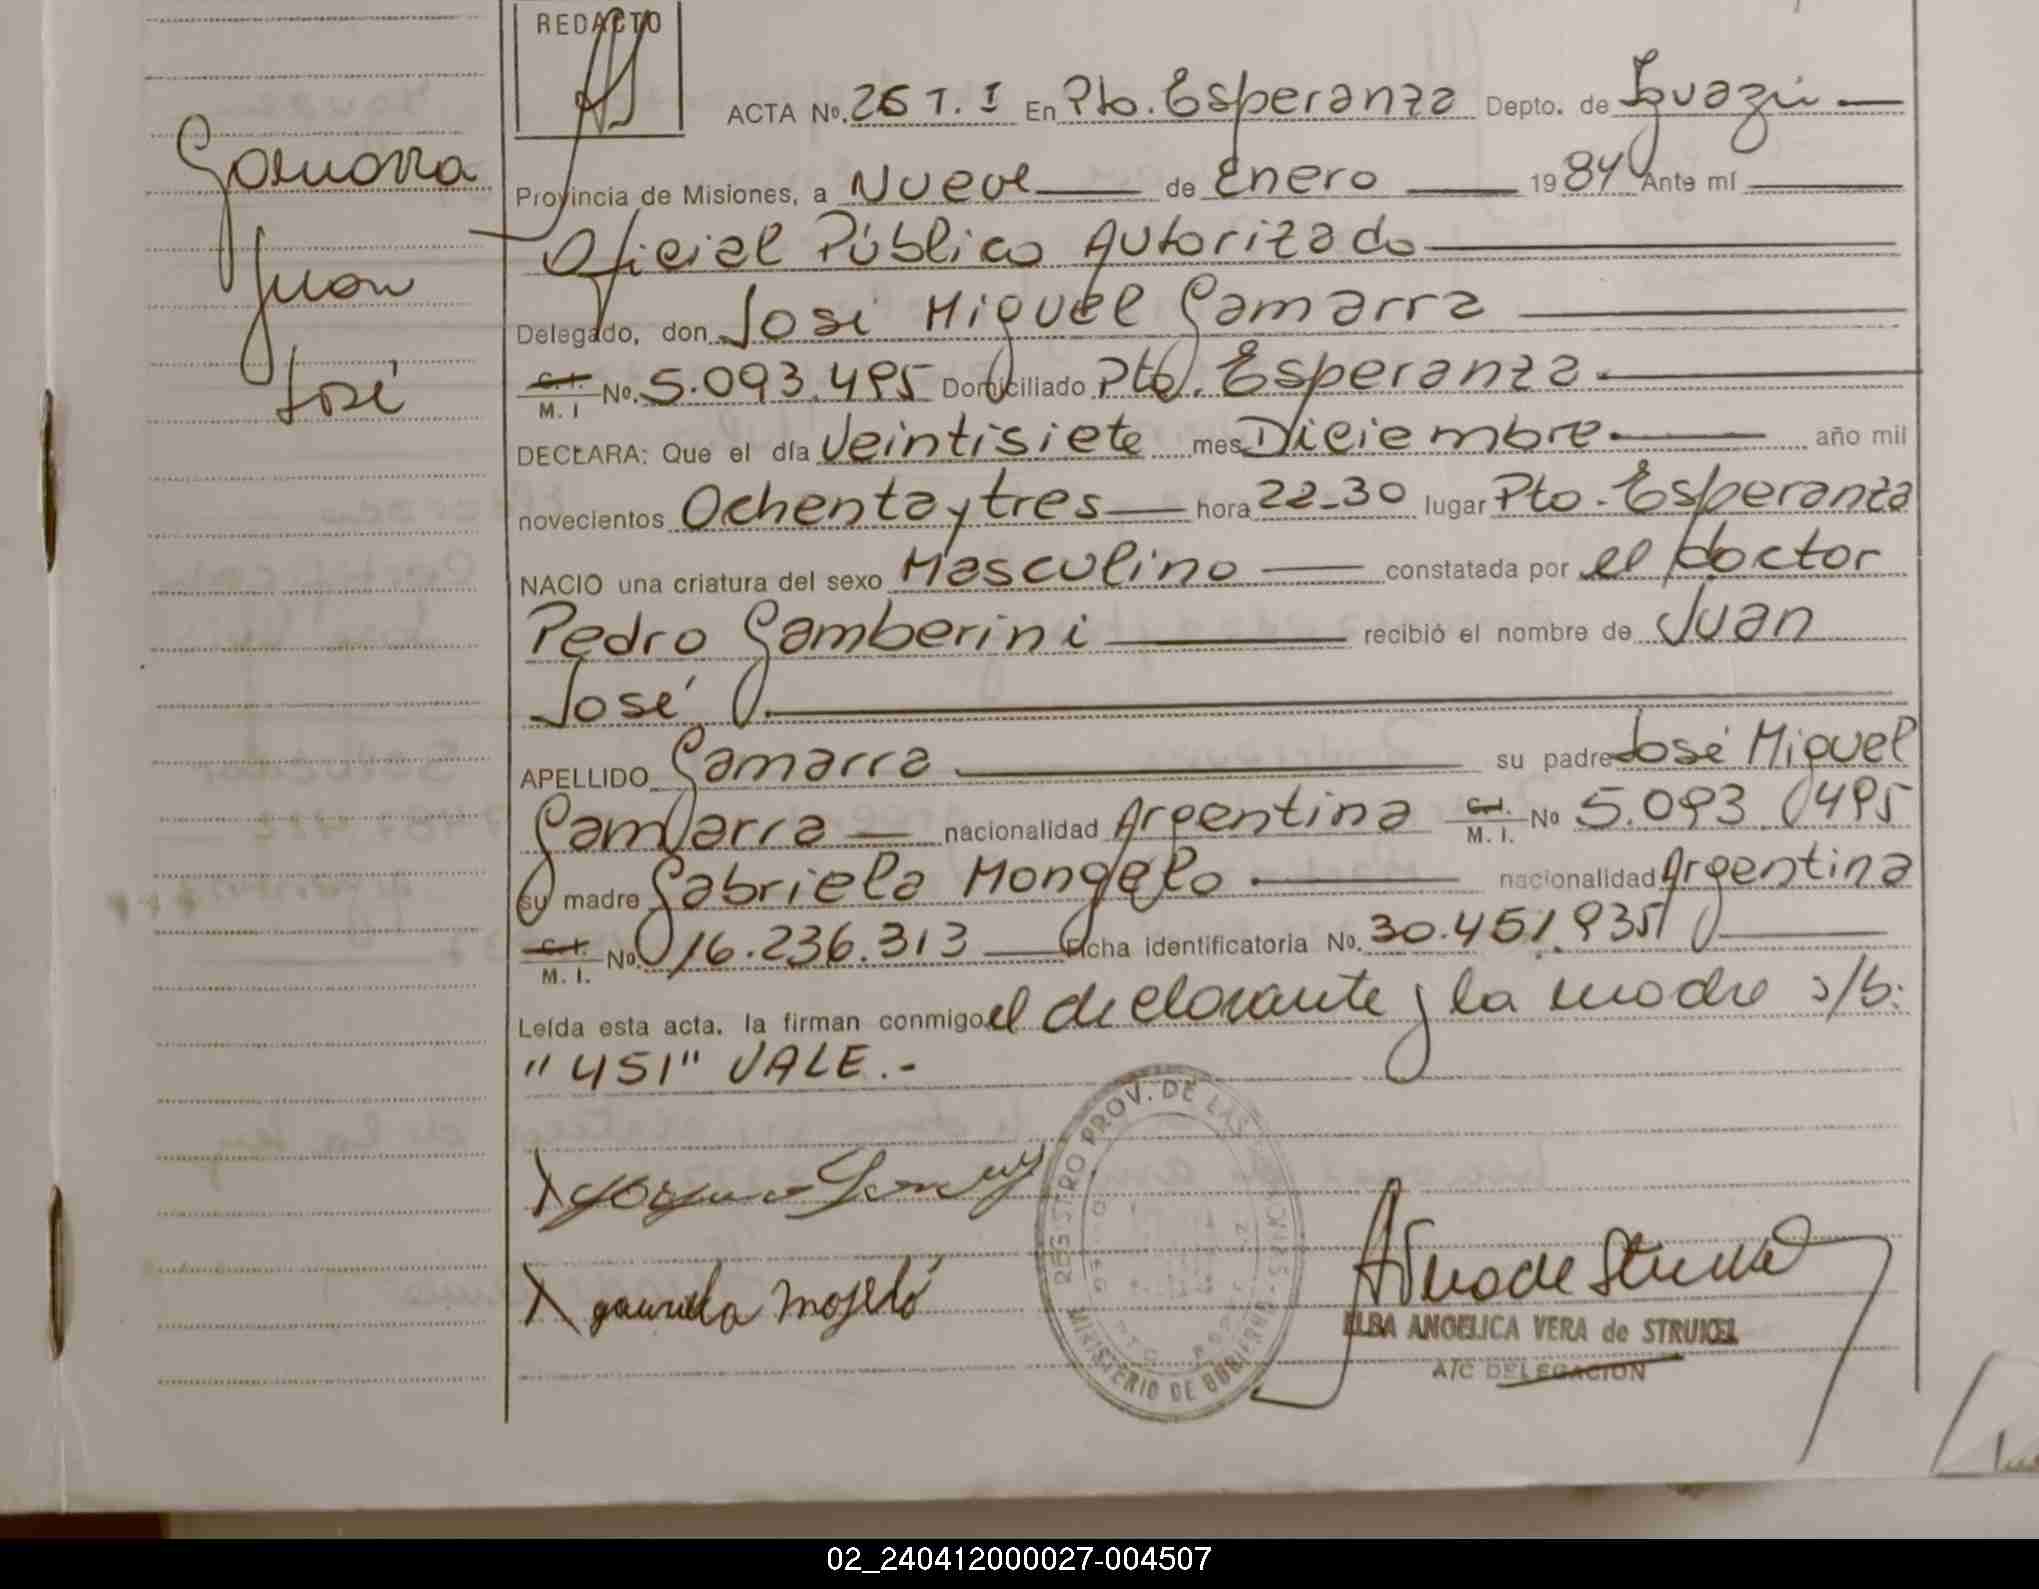 REDACTO
ACTA No. 26 T. I En Pto. Esperanza Depto. de Iguazú
Provincia de Misiones, a Nueve de Enero 1984 Ante mí
Oficial Público Autorizado
Delegado, don José Miguel Gamarra
C.I. M. I No. 5.093.495 Domiciliado Pto. Esperanza
DECLARA: Que el día Veintisiete mes Diciembre año mil
novecientos Ochenta y tres hora 22-30 lugar Pto. Esperanza
NACIO una criatura del sexo Masculino constatada por el doctor
Pedro Gamberini recibió el nombre de Juan
José
APELLIDO Gamarra su padre José Miguel
Gamarra nacionalidad Argentina C.I. M. I. No 5.093.495
su madre Gabriela Mongelo nacionalidad Argentina
C.I. M. I. No 16.236.313 Ficha identificatoria No. 30.451.935
Leída esta acta, la firman conmigo el declarante y la madre s/b:
"451" VALE.-
Gamarra
Juan
José
REGISTRO PROV. DE LAS
MINISTERIO DE GOBIERNO
ELBA ANGELICA VERA de STRUKEL
A/C DELEGACION
02_240412000027-004507